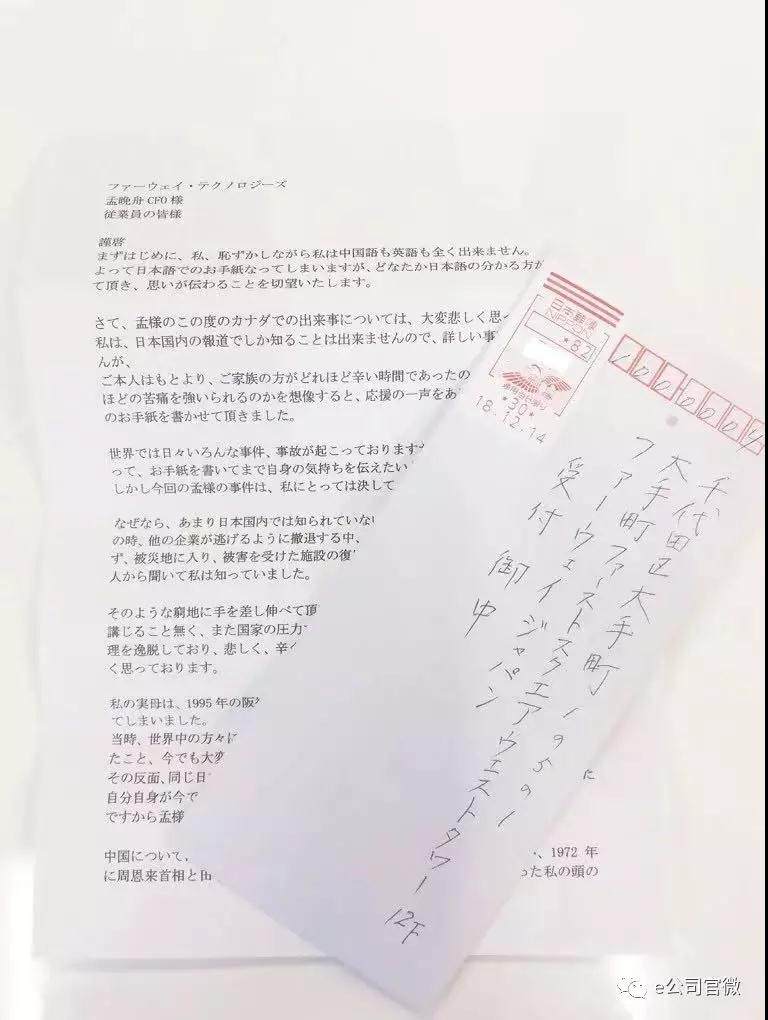 ファーウェイ・テクノロジーズ
孟晩舟 CFO 様
従業員の皆様
謹啓
まずはじめに、私、恥ずかしながら私は中国語も英語も全く出来ません。
よって日本語でのお手紙なってしまいますが、どなたか日本語の分かる方が
て頂き、思いが伝わることを切望いたします。
さて、孟様のこの度のカナダでの出来事については、大変悲しく思
私は、日本国内の報道でしか知ることは出来ませんので、詳しい事
んが、
ご本人はもとより、ご家族の方がどれほど辛い時間であったの
ほどの苦痛を強いられるのかを想像すると、応援の一声をあ
のお手紙を書かせて頂きました。
世界では日々いろんな事件、事故が起こっております
って、お手紙を書いてまで自身の気持ちを伝えたい
しかし今回の孟様の事件は、私にとっては決して
なぜなら、あまり日本国内では知られていな
の時、他の企業が逃げるように撤退する中、
ず、被災地に入り、被害を受けた施設の復
人から聞いて私は知っていました。
そのような窮地に手を差し伸べて頂
講じること無く、また国家の圧力
理を逸脱しており、悲しく、辛
く思っております。
私の実母は、1995 年の阪
てしまいました。
当時、世界中の方々に
たこと、今でも大変
その反面、同じ日
自分自身が今で
ですから孟様
中国について、
、1972 年
に周恩来首相と田
った私の頭の
日本郵便
NIPPON
*82
*30*
18.12.14
1000004
千代田区大手町
大手町ファーストスクエアウエストタワー 12F
ファーウェイジャパン
受付 御中
e公司官微